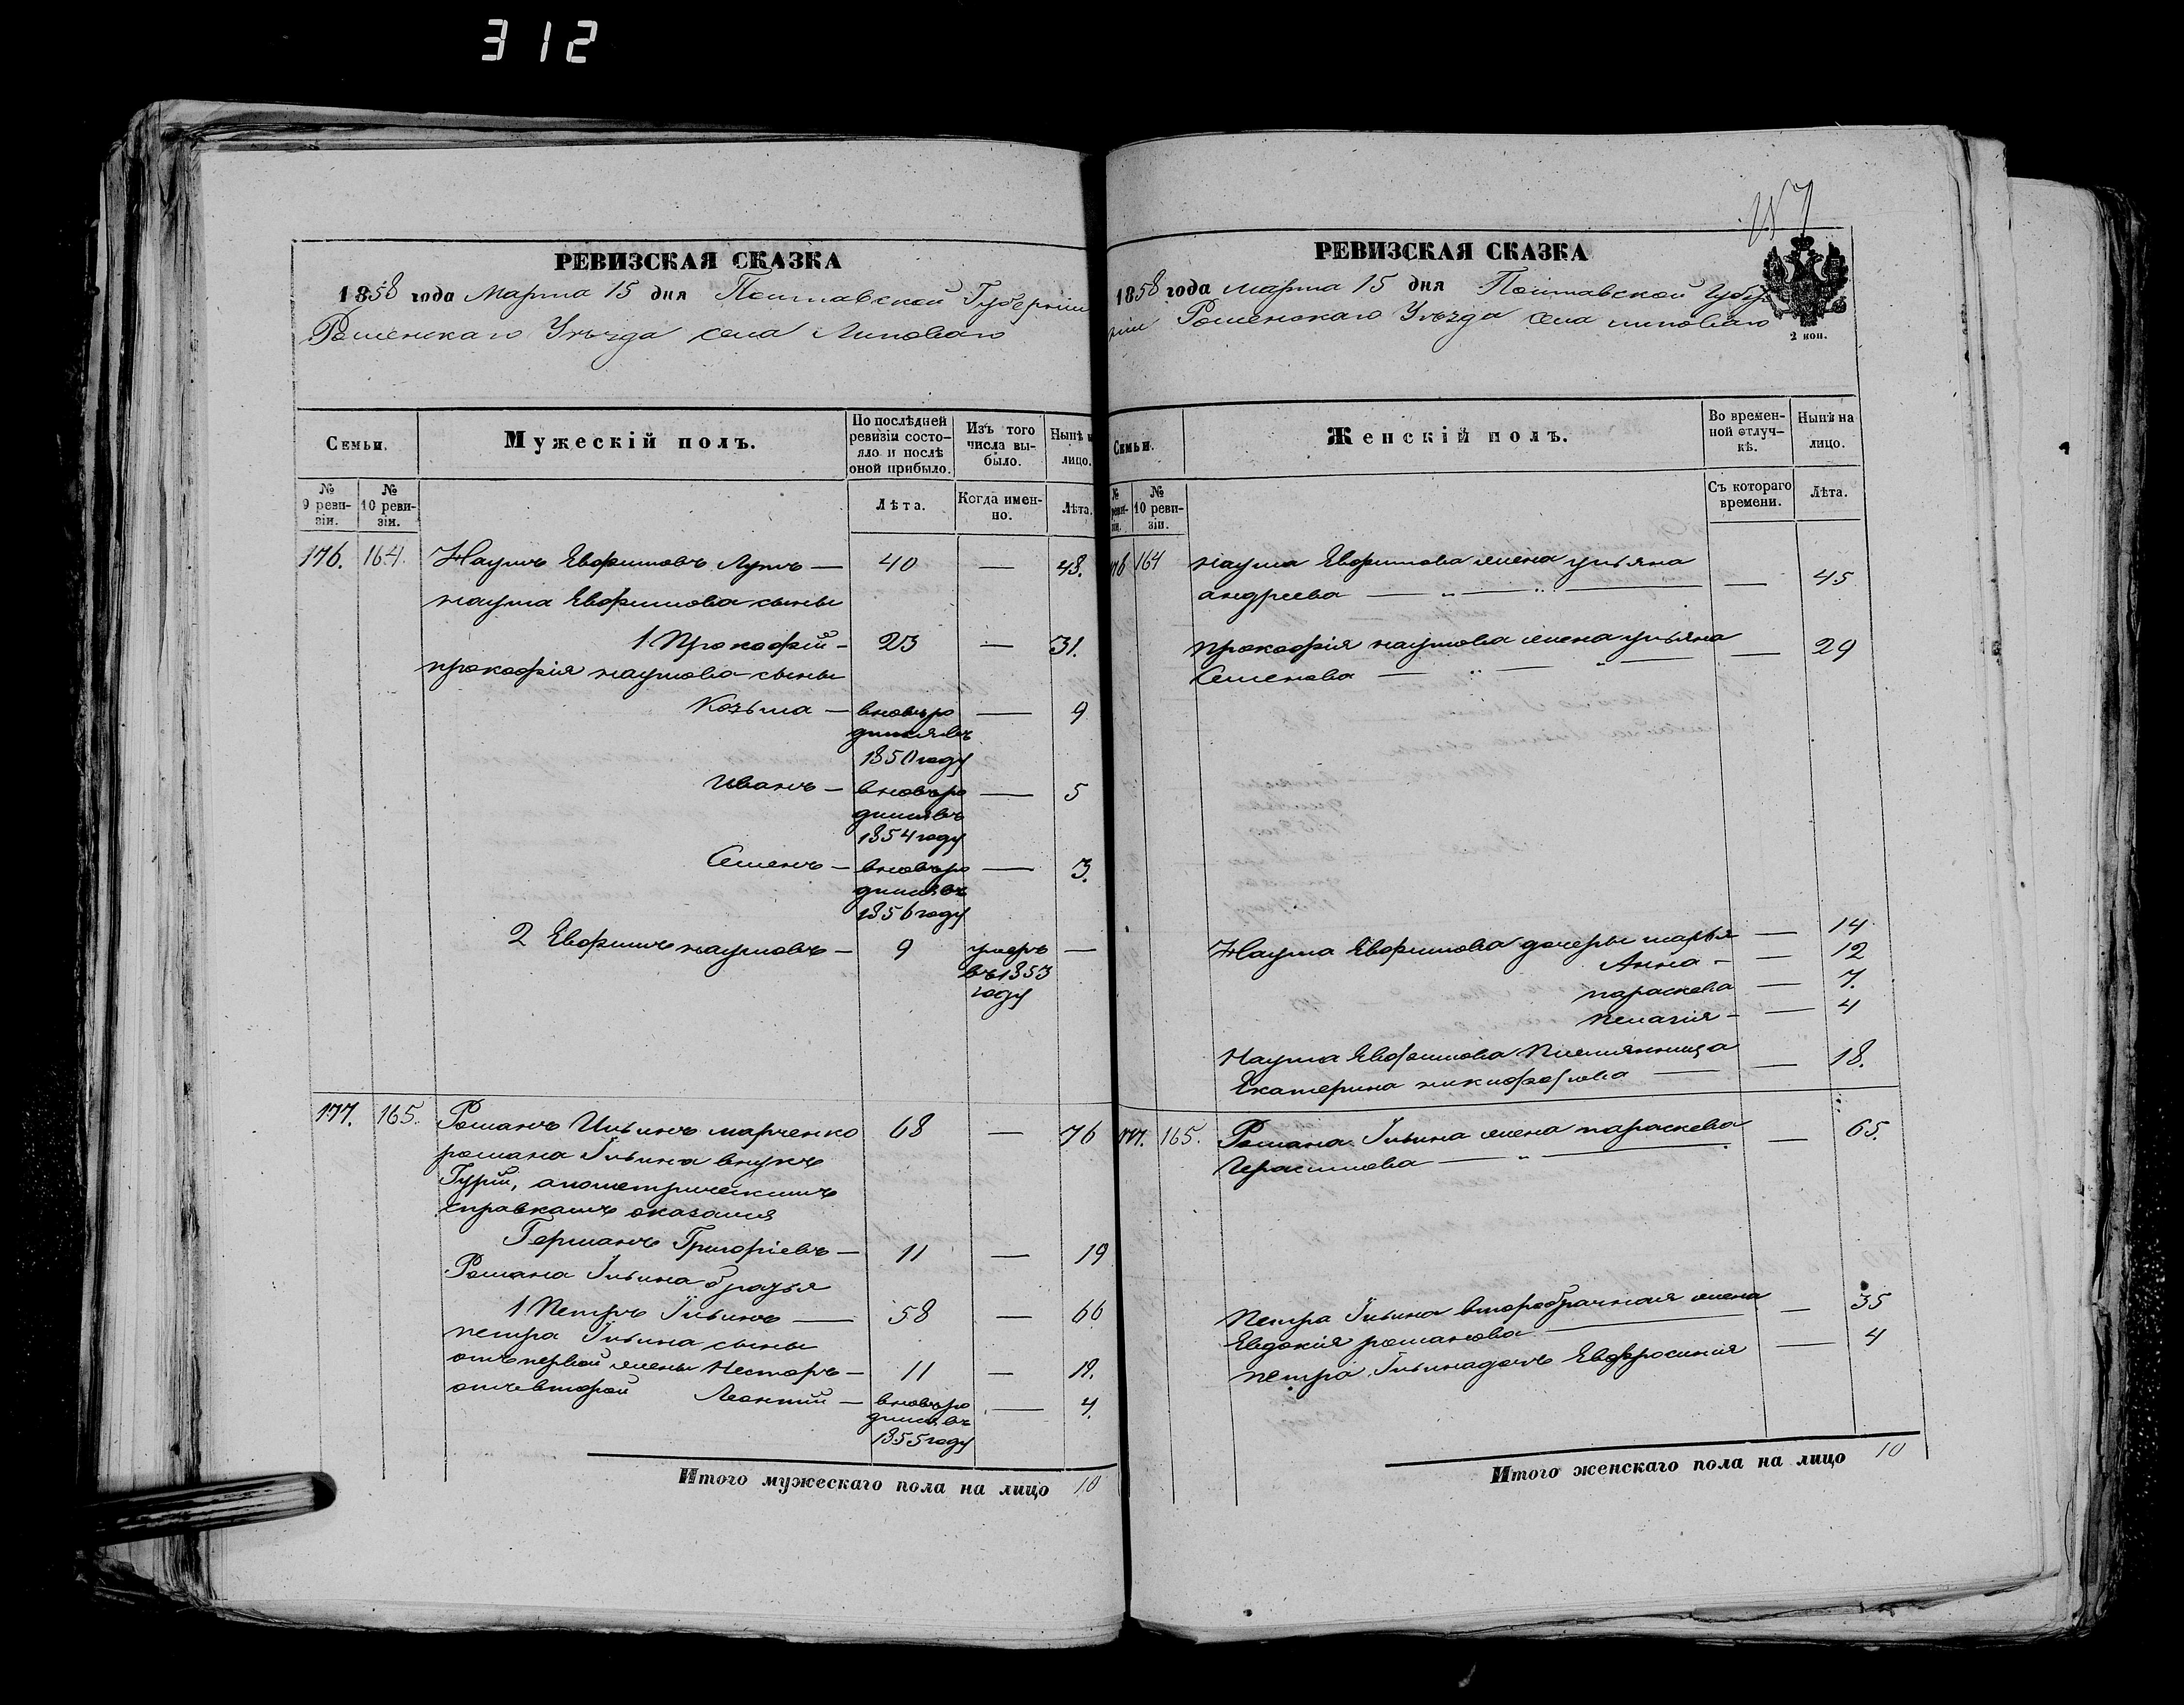 312
РЕВИЗСКАЯ СКАЗКА
1858 года Марта 15 дня Полтавской Губерніи
Роменскаго Уѣзда села Липоваго
Семьи.
Мужескій полъ.
По послѣдней ревизіи состояло и послѣ оной прибыло.
Изъ того числа выбыло.
Нынѣ
лицо.
№ 9 ревизіи.
№ 10 ревизіи.
Лѣта.
Когда именно.
Лѣта.
176. 164. Наумъ Евфимовъ — 40 — 48.
наума Евфимова сыны
1 Прокофій — 23 — 31.
прокофія наумова сыны
Козьма — вновь ро — 9
дился въ
1850 году
Иванъ — вновь ро — 5
дился въ
1854 году
Семенъ — вновь ро — 3.
дился въ
1856 году
2 Евфимъ наумовъ — 9 умеръ —
въ 1853
году
177. 165. Романъ Ильинъ марченко 68 — 76
романа Ильина внукъ
Гурій, апометрическимъ
справкамъ оказался
Германъ Григоріевъ — 11 — 19
Романа Ильина братья
1 Петръ Ильинъ — 58 — 66
петра Ильина сыны
отъ первой жены Несторъ — 11 — 19.
отъ второй Леонтій — вновь ро — 4.
дился въ
1855 году
Итого мужескаго пола на лицо 10
157
РЕВИЗСКАЯ СКАЗКА
1858 года марта 15 дня Полтавской Губер
ніи Роменскаго Уѣзда села липоваго
2 коп.
Семьи.
Женскій полъ.
Во временной отлучкѣ.
Нынѣ на лицо.
№ 10 ревизіи.
Съ котораго времени.
Лѣта.
176 164 наума Евфимова жена ульяна
андреева — „ — „ — — 45
прокофія наумова жена ульяна — 29
Семенова — „ — „ —
Наума Евфимова дочери марья — 14
Анна — — 12
параскева — 7.
пелагія — — 4
Наума Евфимова племянница
Екатерина никифорова — — 18.
177. 165. Романа Ильина жена параскева
Герасимова — „ — — 65.
Петра Ильина второбрачная жена — 35
Евдокія романова —
петра Ильина дочь Евфросинія — 4
Итого женскаго пола на лицо 10